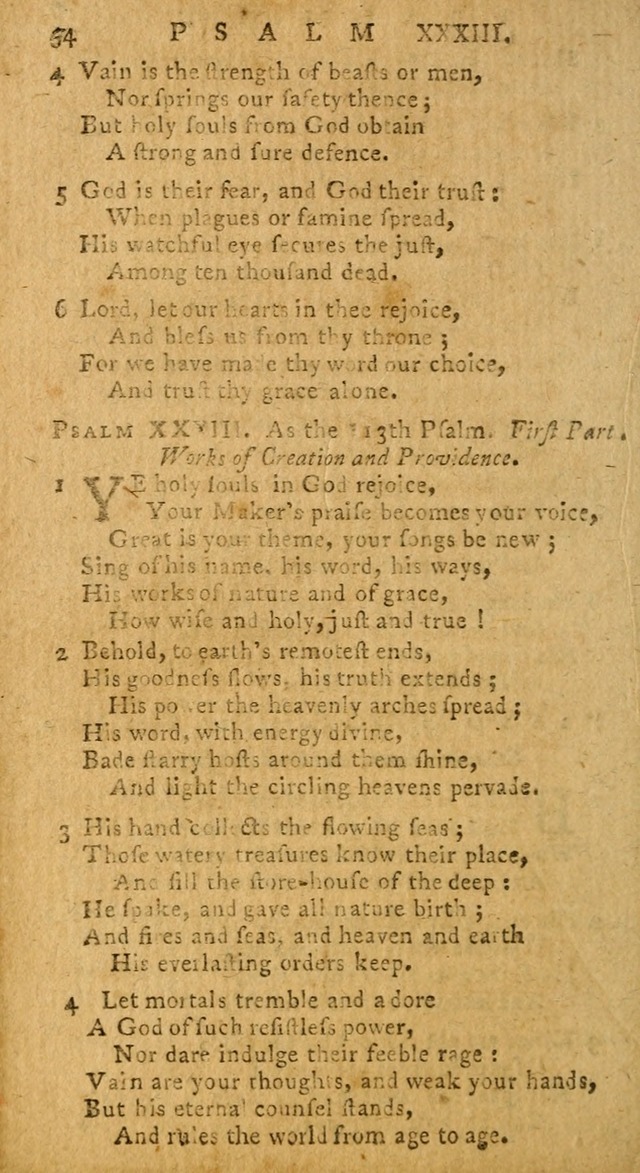 54 PSALM XXXIII.
4 Vain is the ſtrength of beaſts or men,
Nor ſprings our ſafety thence ;
But holy ſouls from God obtain
A ſtrong and ſure defence.
5 God is their fear, and God their truſt :
When plagues or famine ſpread,
His watchful eye ſecures the juſt,
Among ten thouſand dead.
6 Lord, let our hearts in thee rejoice,
And bleſs us from thy throne ;
For we have made thy word our choice,
And truſt thy grace alone.
PSALM XXXIII. As the 113th Pſalm. Firſt Part.
Works of Creation and Providence.
1 YE holy ſouls in God rejoice,
Your Maker's praiſe becomes your voice,
Great is your theme, your ſongs be new ;
Sing of his name, his word, his ways,
His works of nature and of grace,
How wiſe and holy, juſt and true !
2 Behold, to earth's remoteſt ends,
His goodneſs flows, his truth extends ;
His power the heavenly arches ſpread ;
His word, with energy divine,
Bade ſtarry hoſts around them ſhine,
And light the circling heavens pervade.
3 His hand collects the flowing ſeas ;
Thoſe watery treaſures know their place,
And fill the ſtore-houſe of the deep :
He ſpake, and gave all nature birth ;
And fires and ſeas, and heaven and earth
His everlaſting orders keep.
4 Let mortals tremble and adore
A God of ſuch reſiſtleſs power,
Nor dare indulge their feeble rage :
Vain are your thoughts, and weak your hands,
But his eternal counſel ſtands,
And rules the world from age to age.